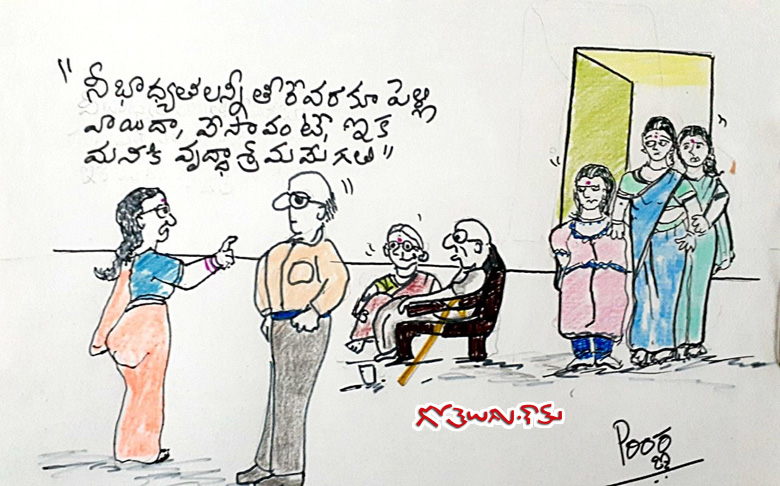 "నీ భాధ్యతలన్నీ తీరేవరకూ పెళ్లి
వాయిదా, వేసావంటే, ఇక
మనకి వృద్ధాశ్రమమే గతి"
గోతెలుగు.కామ్